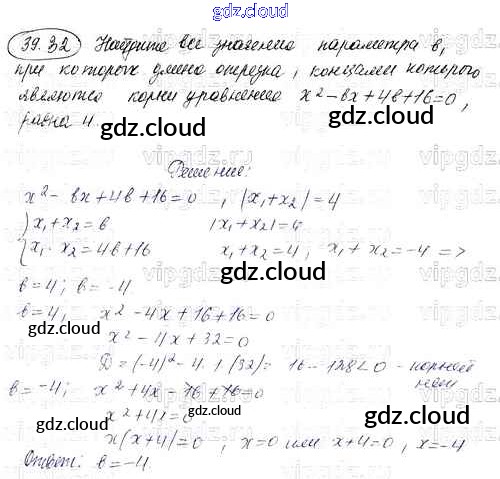 gdz.cloud
39.32 Найдите все значения параметра в,
при которых длина отрезка, концами которого
являются корни уравнения x² - вx + 4в + 16 = 0,
равна 4.
gdz.cloud gdz.cloud
Решение:
x² - вx + 4в + 16 = 0 , |x₁ + x₂| = 4
{x₁ + x₂ = в |x₁ + x₂| = 4
{x₁ · x₂ = 4в + 16 x₁ + x₂ = 4 ; x₁ + x₂ = -4 =>
gdz.cloud
в = 4 ; в = -4
в = 4 ; x² - 4x + 16 + 16 = 0
gdz.cloud x² - 4x + 32 = 0 gdz.cloud
D = (-4)² - 4 · 1 (32) = 16 - 128 < 0 - корней
нет
в = -4 ; x² + 4x - 16 + 16 = 0
x² + 4x = 0 gdz.cloud
x(x + 4) = 0 , x = 0 или x + 4 = 0 , x = -4
Ответ: в = -4.
gdz.cloud